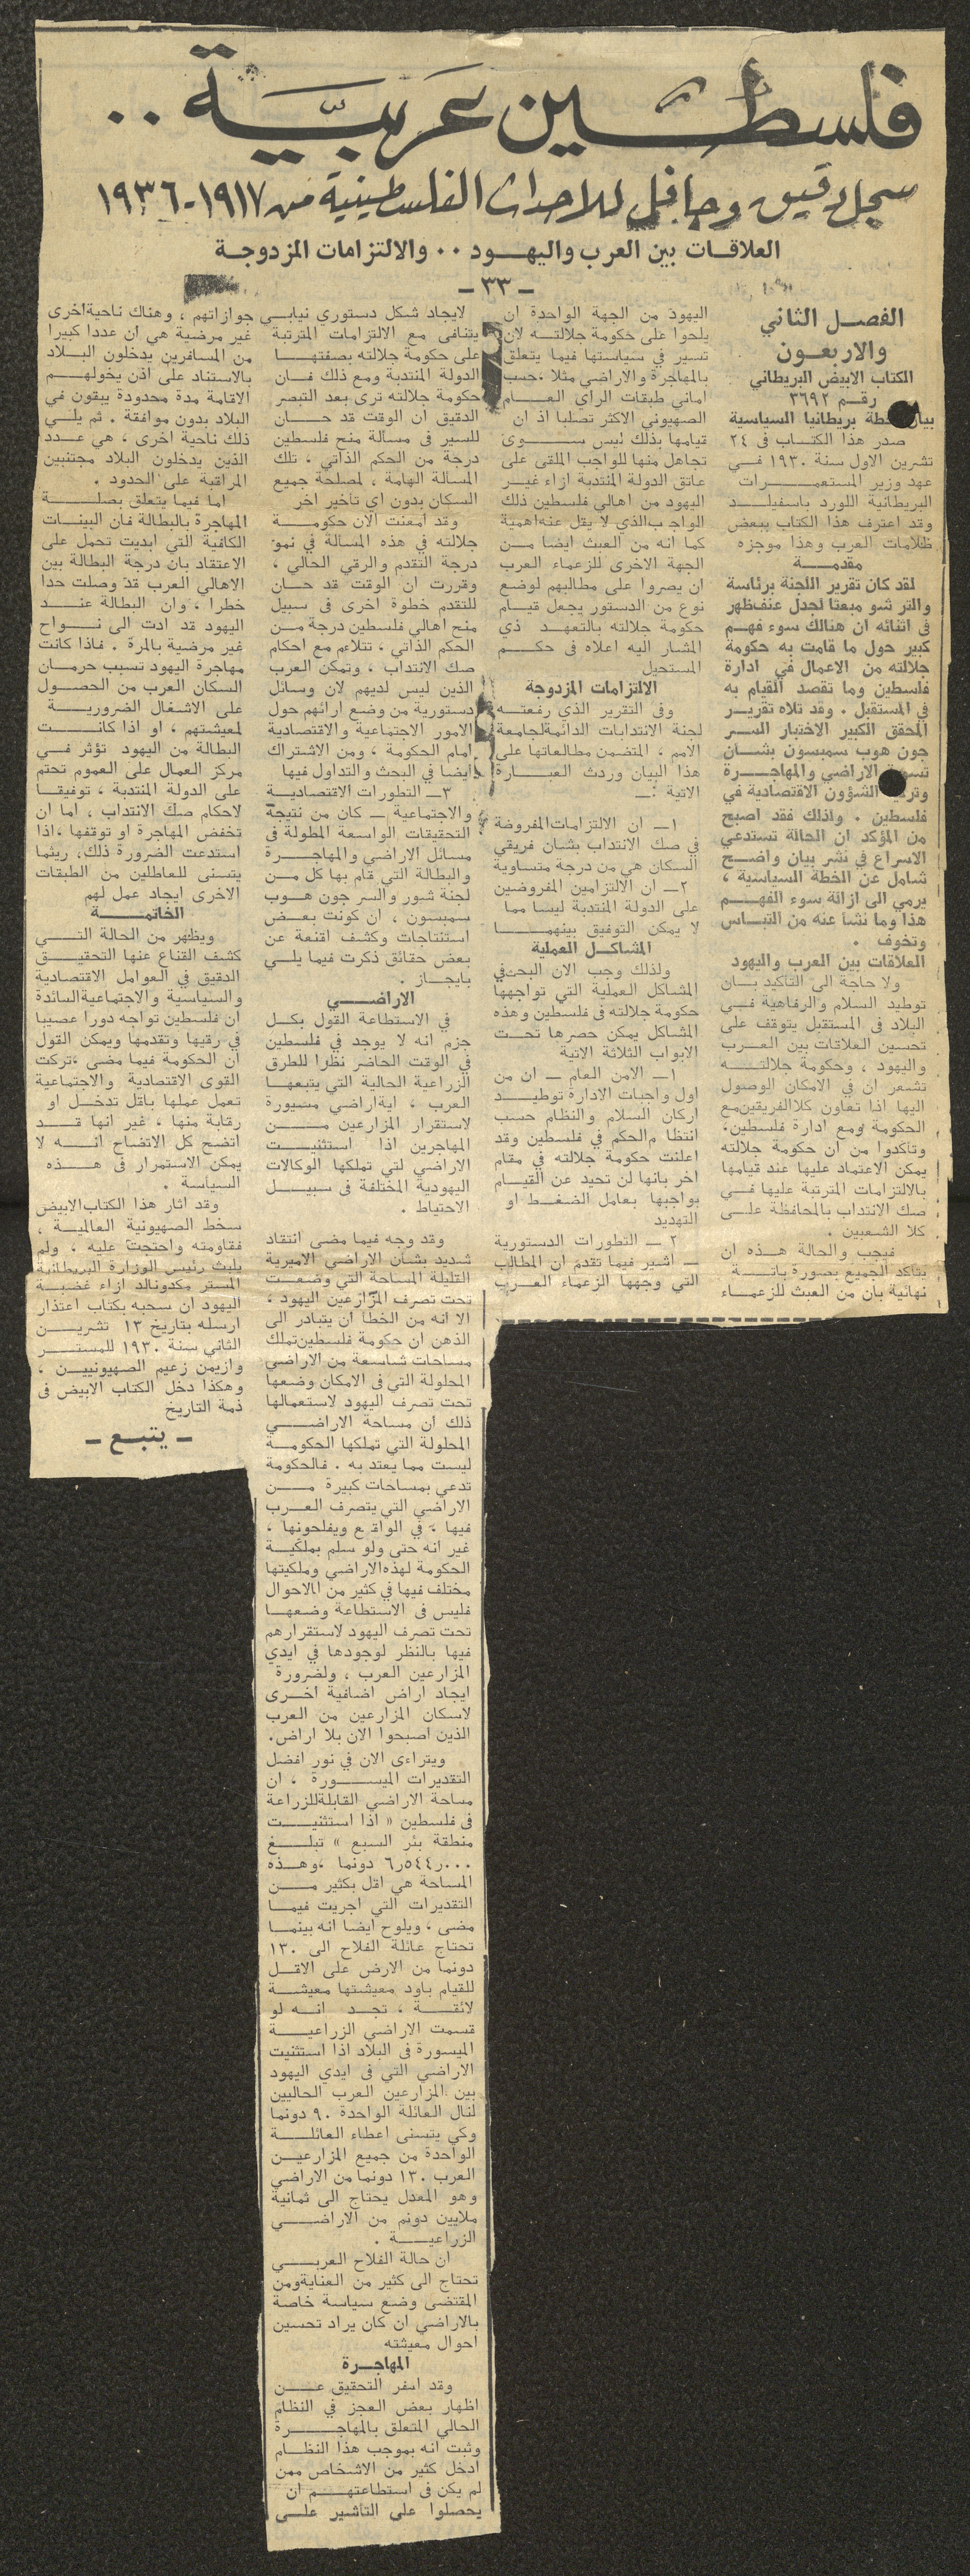 فلسطين عربية ..
سجل دقيق وحافل للاحداث الفلسطينية من ١٩١٧-١٩٣٦
العلاقات بين العرب واليهود .. والالتزامات المزدوجة
- ٣٣ -
الفصل الثاني
والاربعون
الكتاب الابيض البريطاني
رقم ٣٦٩٢
بيان خطة بريطانيا السياسية
صدر هذا الكتاب في ٢٤
تشرين الاول سنة ١٩٣٠ في
عهد وزير المستعمرات
البريطانية اللورد باسفيلد
وقد اعترف هذا الكتاب ببعض
ظلامات العرب وهذا موجزه
مقدمة
لقد كان تقرير اللجنة برئاسة
والتر شو مبعثا لجدل عنيف ظهر
في اثنائه ان هنالك سوء فهم
كبير حول ما قامت به حكومة
جلالته من الاعمال في ادارة
فلسطين وما تقصد القيام به
في المستقبل . وقد تلاه تقرير
المحقق الكبير الاختبار السر
جون هوب سمبسون بشان
الاراضي والمهاجرة
الشؤون الاقتصادية في
فلسطين . ولذلك فقد اصبح
من المؤكد ان الحالة تستدعي
الاسراع في نشر بيان واضح
شامل عن الخطة السياسية ،
يرمي الى ازالة سوء الفهم
هذا وما نشا عنه من التباس
وتخوف .
العلاقات بين العرب واليهود
ولا حاجة الى التاكيد بان
توطيد السلام والرفاهية في
البلاد في المستقبل يتوقف على
تحسين العلاقات بين العرب
واليهود ، وحكومة جلالته
تشعر ان في الامكان الوصول
اليها اذا تعاون كلا الفريقين مع
الحكومة ومع ادارة فلسطين.
وتأكدوا من ان حكومة جلالته
يمكن الاعتماد عليها عند قيامها
بالالتزامات المترتبة عليها في
صك الانتداب بالمحافظة على
كلا الشعبين .
فيجب والحالة هذه ان
يتاكد الجميع بصورة باتة
نهائية بان من العبث للزعماء
اليهود من الجهة الواحدة ان
يلحوا على حكومة جلالته لان
تسير في سياستها فيما يتعلق
بالمهاجرة والاراضي مثلا ،حسب
اماني طبقات الراي العام
الصهيوني الاكثر تصلبا اذ ان
قيامها بذلك ليس سوى
تجاهل منها للواجب الملقى على
عاتق الدولة المنتدبة ازاء غير
اليهود من اهالي فلسطين ذلك
الواجب الذي لا يقل عنه اهمية
كما انه من العبث ايضا من
الجهة الاخرى للزعماء العرب
ان يصروا على مطاليبهم لوضع
نوع من الدستور يجعل قيام
حكومة جلالته بالتعهد ذي
المشار اليه اعلاه في حكم
المستحيل
الالتزامات المزدوجة
وفي التقرير الذي رفعته
لجنة الانتدابات الدائمة لجامعة
الامم ، المتضمن مطالعاتها على
هذا البيان وردت العبارة
الاتية :ـ
١ـ ان الالتزامات المفروضة
في صك الانتداب بشان فريقي
السكان هي من درجة متساوية
٢ـ ان الالتزامين المفروضين
على الدولة المنتدبة ليسا مما
لا يمكن التوفيق بينهما
المشاكل العملية
ولذلك وجب الان البحث في
المشاكل العملية التي تواجهها
حكومة جلالته في فلسطين وهذه
المشاكل يمكن حصرها تحت
الابواب الثلاثة الاتية
١ـ الامن العام ـ ان من
اول واجبات الادارة توطيد
اركان السلام والنظام حسب
انتظا م الحكم في فلسطين وقد
اعلنت حكومة جلالته في مقام
اخر بانها لن تحيد عن القيام
بواجبها بعامل الضغط او
التهديد
٢ ـ التطورات الدستورية
ـ اشير فيما تقدم ان المطالب
التي وجهها الزعماء العرب
لايجاد شكل دستوري نيابي
يتنافى مع الالتزامات المترتبة
على حكومة جلالته بصفتها
الدولة المنتدبة ومع ذلك فان
حكومة جلالته ترى بعد التبصر
الدقيق ان الوقت قد حان
للسير في مسالة منح فلسطين
درجة من الحكم الذاتي ، تلك
المسالة الهامة ، لمصلحة جميع
السكان بدون اي تاخير اخر
وقد امعنت الان حكومة
جلالته في هذه المسالة في نمو
درجة التقدم والرقي الحالي ،
وقررت ان الوقت قد حان
للتقدم خطوة اخرى في سبيل
منح اهالي فلسطين درجة من
الحكم الذاتي ، تتلاءم مع احكام
صك الانتداب ، وتمكن العرب
الذين ليس لديهم لان وسائل
دستورية من وضع ارائهم حول
الامور الاجتماعية والاقتصادية
امام الحكومة ، ومن الاشتراك
ايضا في البحث والتداول فيها
٣ـ التطورات الاقتصادية
والاجتماعية ـ كان من نتيجة
التحقيقات الواسعة المطولة في
مسائل الاراضي والمهاجرة
والبطالة التي قام بها كل من
لجنة شو والسر جون هوب
سمبسون ، ان كونت بعض
استنتاجات وكشف اقنعة عن
بعض حقائق ذكرت فيما يلي
بايجاز .
الاراضي
في الاستطاعة القول بكل
جزم انه لا يوجد في فلسطين
في الوقت الحاضر نظرا للطرق
الزراعية الحالية التي يتبعها
العرب ، اية اراضي ميسورة
لاستقرار المزارعين من
المهاجرين اذا استثنيت
الاراضي لتي تملكها الوكالات
اليهودية المختلفة في سبيل
الاحتياط .
وقد وجه فيما مضى انتقاد
شديد بشان الاراضي الاميرية
القليلة المساحة التي وضعت
تحت تصرف المزارعين اليهود ،
الا انه من الخطا ان يتبادر الى
الذهن ان حكومة فلسطين تملك
مساحات شاسعة من الاراضي
المحلولة التي في الامكان وضعها
تحت تصرف اليهود لاستعمالها
ذلك ان مساحة الاراضي
المحلولة التي تملكها الحكومة
ليست مما يعتد به . فالحكومة
تدعي بمساحات كبيرة من
الاراضي التي يتصرف العرب
فيها ، في الواقع ويفلحونها ،
غير انه حتى ولو سلم بملكية
الحكومة لهذه الاراضي وملكيتها
مختلف فيها في كثير من الاحوال
فليس في الاستطاعة وضعها
تحت تصرف اليهود لاستقرارهم
فيها بالنظر لوجودها في ايدي
المزارعين العرب ، ولضرورة
ايجاد اراض اضافية اخرى
لاسكان المزارعين من العرب
الذين اصبحوا الان بلا اراض.
ويتراءى الان في نور افضل
التقديرات الميسورة ، ان
مساحة الاراضي القابلة للزراعة
في فلسطين « اذا استثنيت
منطقة بئر السبع » تبلغ
٦٥٤٤٫٠٠٠ دونما ،وهذه
المساحة هي اقل بكثير من
التقديرات التي اجريت فيما
مضى ، ويلوح ايضا انه بينما
تحتاج عائلة الفلاح الى ١٣٠
دونما من الارض على الاقل
للقيام باود معيشتها معيشة
لائقة ، تجد انه لو
قسمت الاراضي الزراعية
الميسورة في البلاد اذا استثنيت
الاراضي التي في ايدي اليهود
بين المزارعين العرب الحاليين
لنال العائلة الواحدة ٩٠ دونما
وكي يتسنى اعطاء العائلة
الواحدة من جميع المزارعين
العرب ١٣٠ دونما من الاراضي
وهو المعدل يحتاج الى ثمانية
ملايين دونم من الاراضي
الزراعية .
ان حالة الفلاح العربي
تحتاج الى كثير من العناية ومن
المقتضى وضع سياسة خاصة
بالاراضي ان كان يراد تحسين
احوال معيشته
المهاجرة
وقد اسفر التحقيق عن
اظهار بعض العجز في النظام
الحالي المتعلق بالمهاجرة
وثبت انه بموجب هذا النظام
ادخل كثير من الاشخاص ممن
لم يكن في استطاعتهم ان
يحصلوا على التأشير على
جوازاتهم ، وهناك ناحية اخرى
غير مرضية هي ان عددا كبيرا
من المسافرين يدخلون البلاد
بالاستناد على اذن يخولهم
الاقامة مدة محدودة يبقون في
البلاد بدون موافقة . ثم يلي
ذلك ناحية اخرى ، هي عدد
الذين يدخلون البلاد مجتنبين
المراقبة على الحدود .
اما فيما يتعلق بصلة
المهاجرة بالبطالة فان البينات
الكافية التي ابديت تحمل على
الاعتقاد بان درجة البطالة بين
الاهالي العرب قد وصلت حدا
خطرا ، وان البطالة عند
اليهود قد ادت الى نواح
غير مرضية بالمرة . فاذا كانت
مهاجرة اليهود تسبب حرمان
السكان العرب من الحصول
على الاشغال الضرورية
لمعيشتهم ، او اذا كانت
البطالة من اليهود تؤثر في
مركز العمال على العموم تحتم
على الدولة المنتدبة ، توفيقا
لاحكام صك الانتداب ، اما ان
تخفض المهاجرة او توقفها ،اذا
استدعت الضرورة ذلك، ريثما
يتسنى للعاطلين من الطبقات
الاخرى ايجاد عمل لهم
الخاتمة
ويظهر من الحالة التي
كشف القناع عنها التحقيق
الدقيق في العوامل الاقتصادية
والسياسية والاجتماعية السائدة
ان فلسطين تواجه دورا عصيبا
في رقيها وتقدمها ويمكن القول
ان الحكومة فيما مضى ،تركت
القوى الاقتصادية والاجتماعية
تعمل عملها باقل تدخل او
رقابة منها ، غير انها قد
اتضح كل الاتضاح انه لا
يمكن الاستمرار في هذه
السياسة .
وقد اثار هذا الكتاب الابيض
سخط الصهيونية العالمية ،
فقاومته واحتجت عليه ، ولم
يلبث رئيس الوزارة البريطانية
المستر مكدونالد ازاء غضبة
اليهود ان سحبه بكتاب اعتذار
ارسله بتاريخ ١٣ تشرين
الثاني سنة ١٩٣٠ للمستر
وازيمن زعيم الصهيونيين ،
وهكذا دخل الكتاب الابيض في
ذمة التاريخ
ـ يتبع ـ